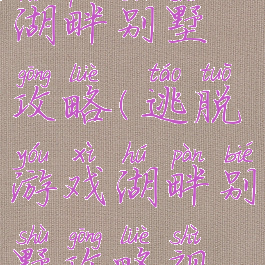 湖畔别墅
gōng lüè táo tuō
攻略(逃脱
yóu xì hú pàn bié
游戏湖畔别
shù gōng lüè shì
墅攻略视